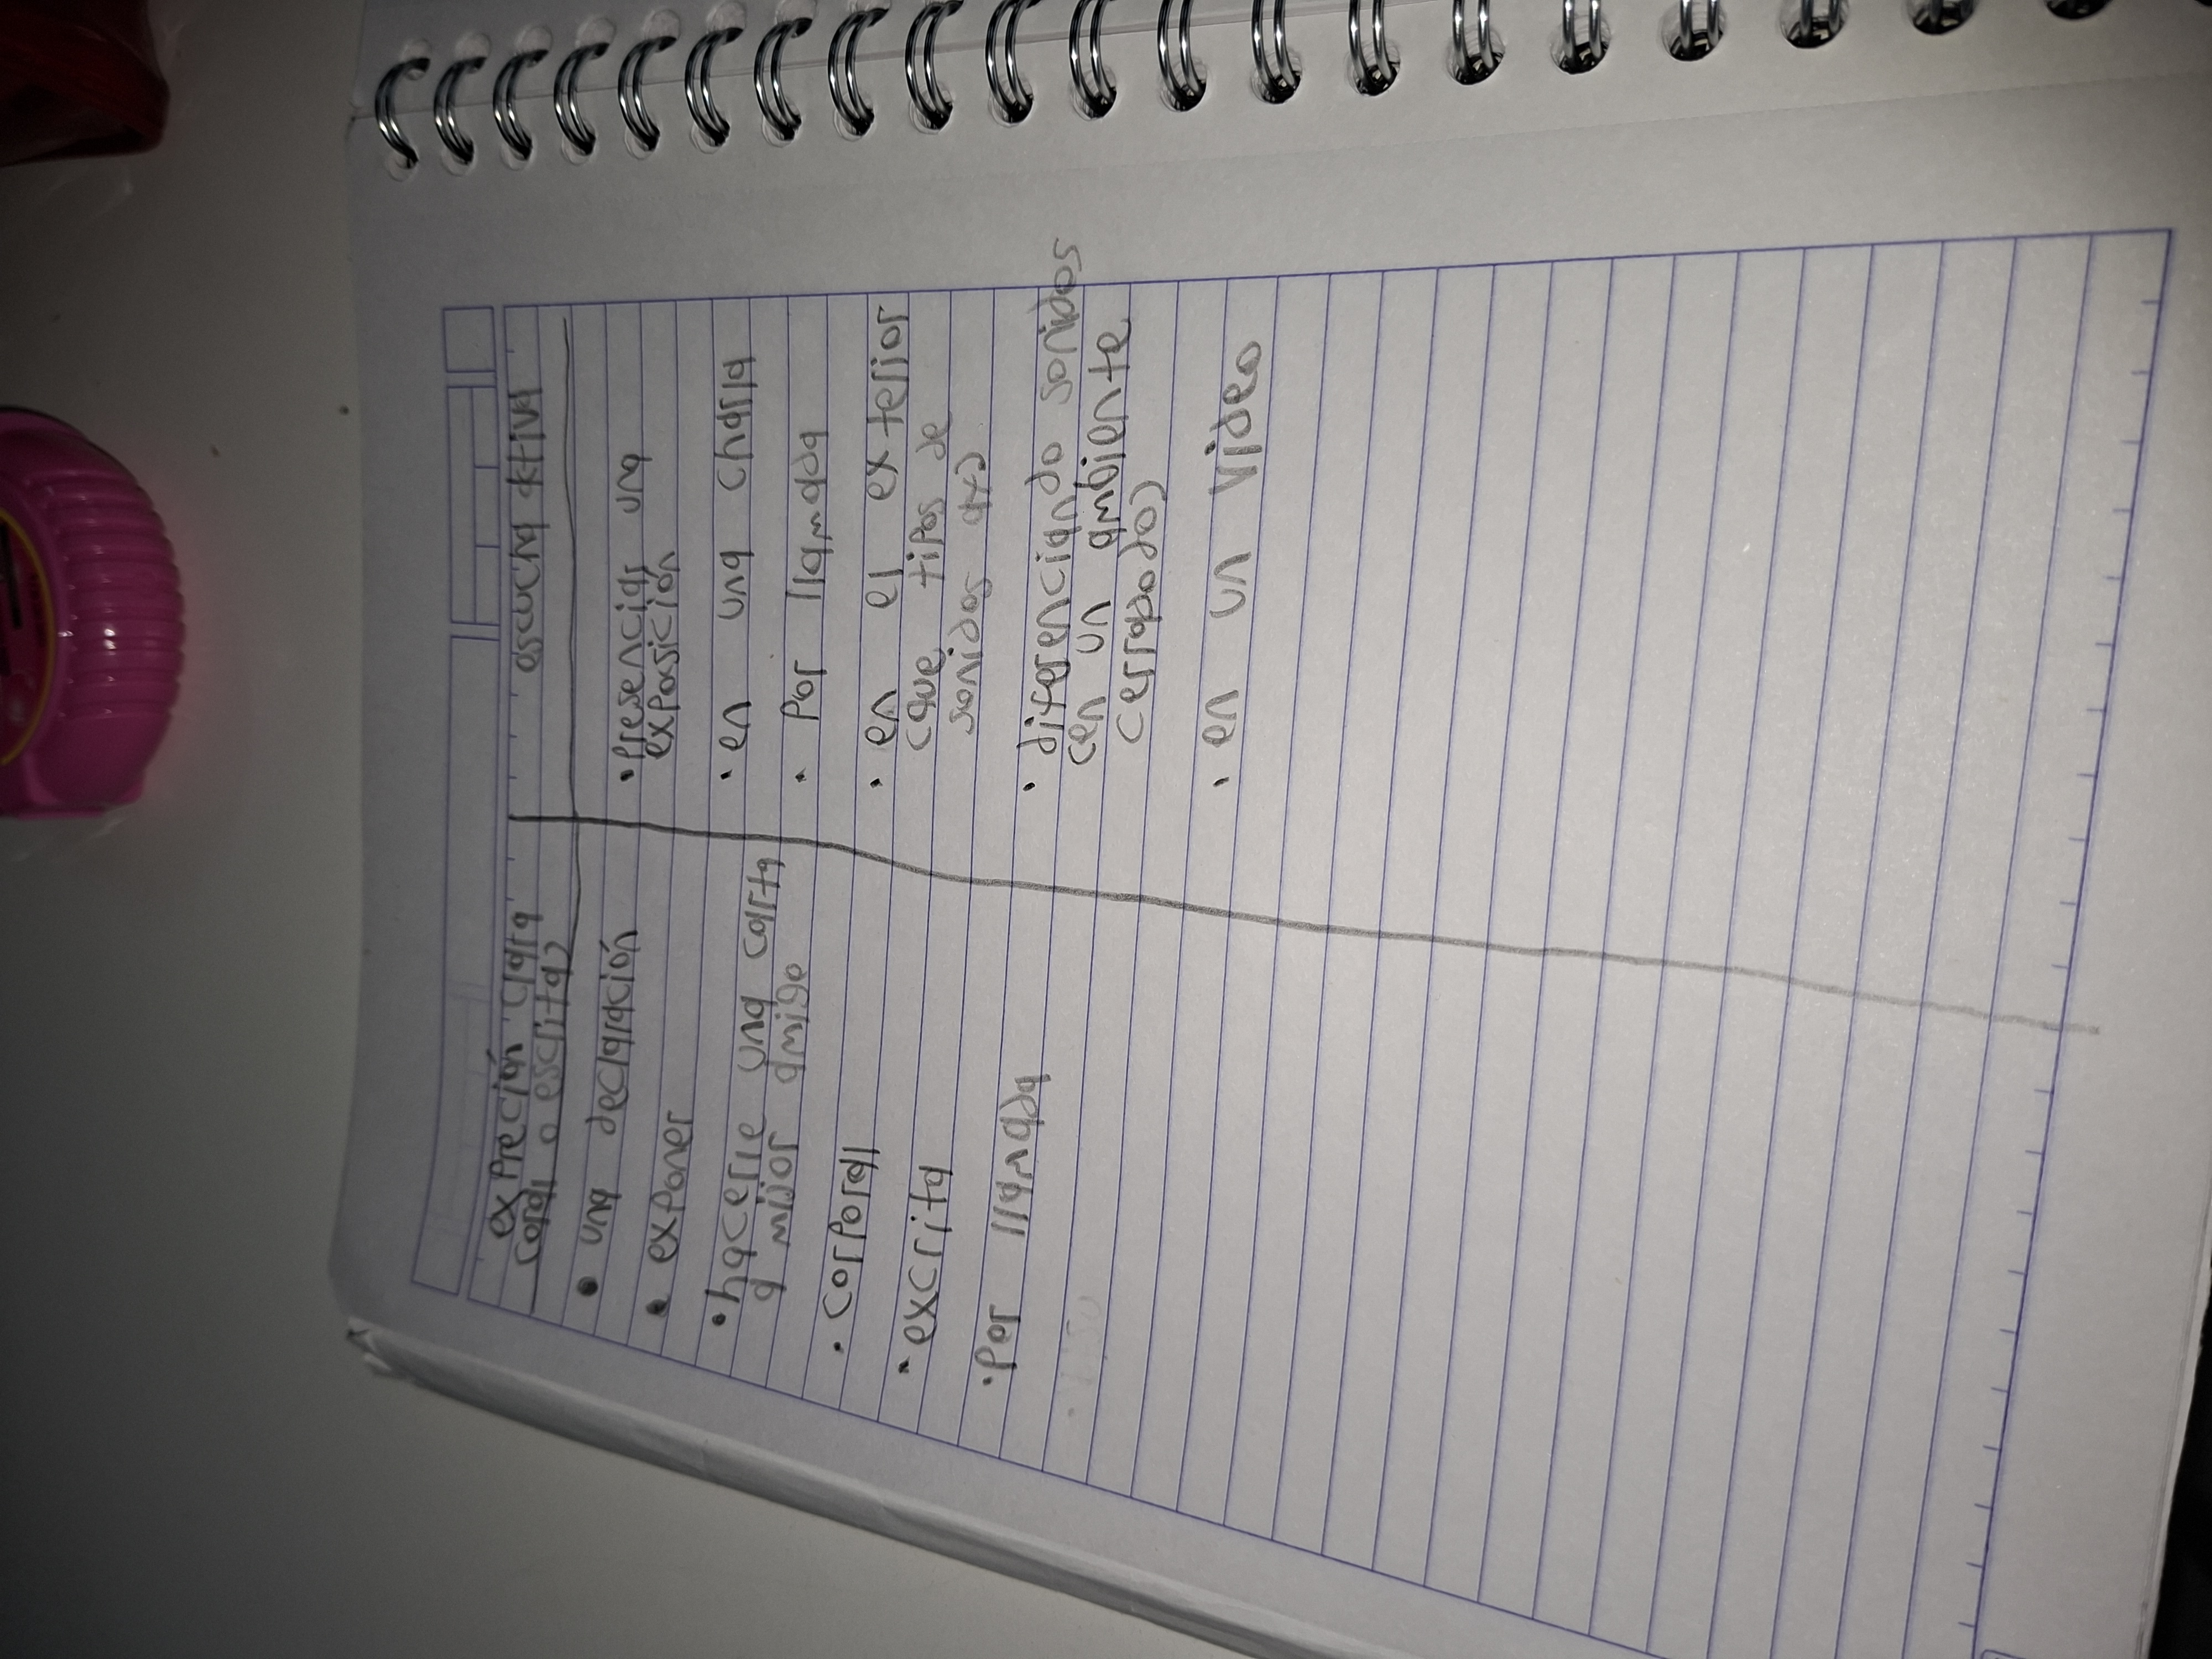 exPreción clara
(oral o escrita)
• una declaración
• exponer
• hacerle una carta
a mijor amigo
• corporal
• excrita
• Por llamada
escucha aktiva
• Presenciar una
exposición
• en una charla
• Por llamada
• en el exterior
(que tipos de
sonidos ay)
• diferenciando sonidos
(en un ambiente
cerrado)
• en un video